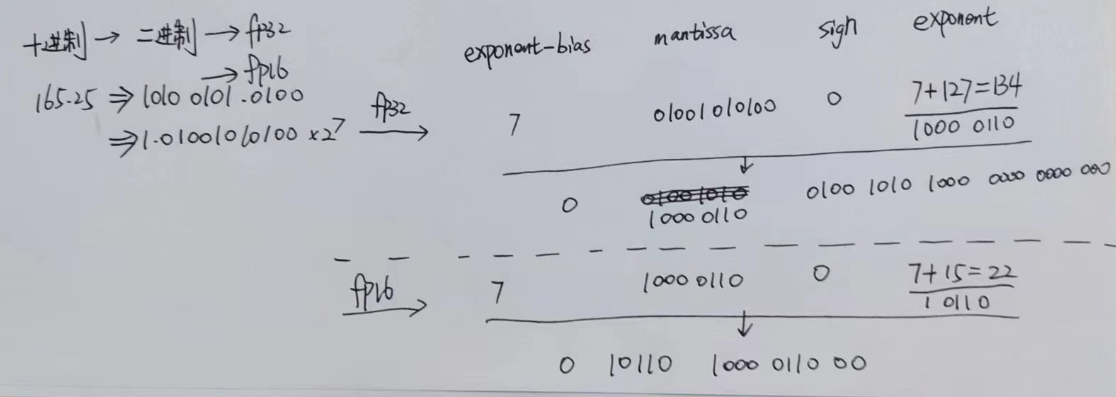 十进制 → 二进制 → fp32
→ fp16
165.25 ⇒ 1010 0101.0100
⇒ 1.01001010100 × 2^7
fp32
exponent-bias mantissa sign exponent
7 01001010100 0 7+127=134
1000 0110
0 01001010 0100 1010 1000 0000 0000 000
1000 0110
fp16
7 1000 0110 0 7+15=22
10110
0 10110 1000 0110 00